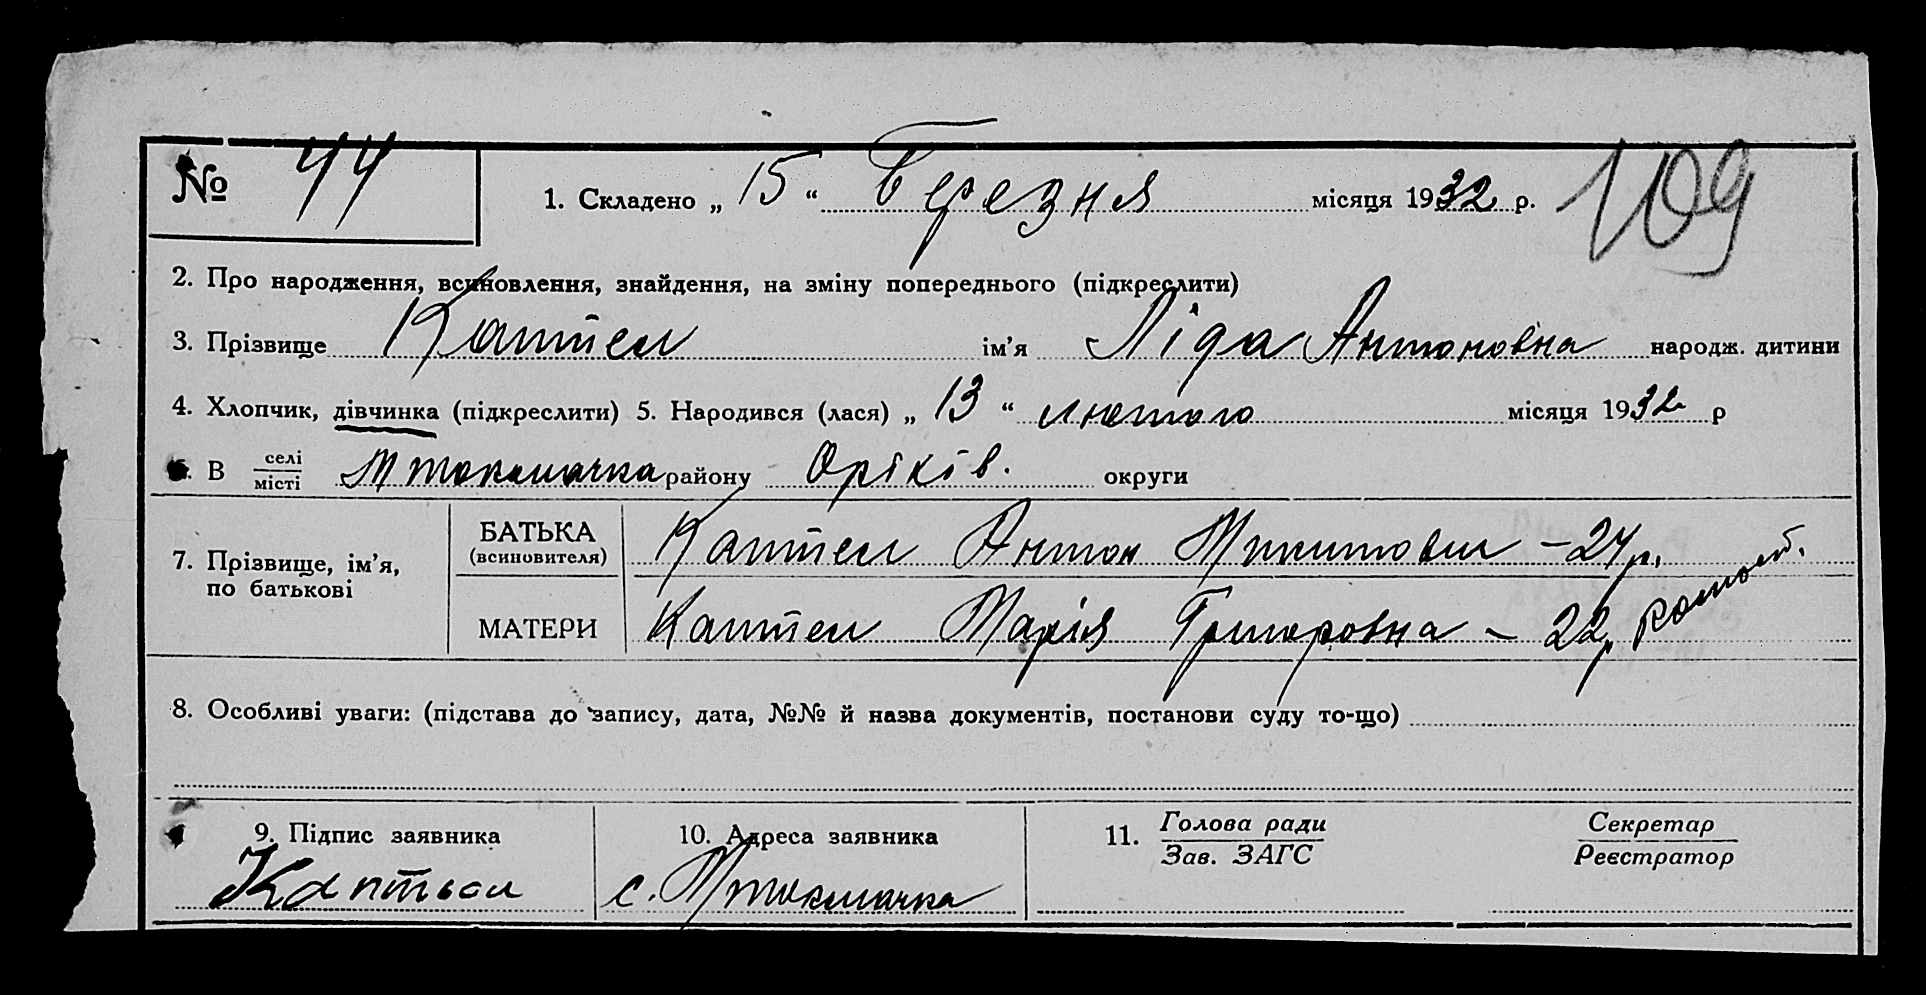 № 44
1. Складено „ 15 “ Березня місяця 1932 р. 109
2. Про народження, всиновлення, знайдення, на зміну попереднього (підкреслити)
3. Прізвище Каптел ім’я Ліда Антоновна народж. дитини
4. Хлопчик, дівчинка (підкреслити) 5. Народився (лася) „ 13 “ лютого місяця 1932 р
6. В селі місті М токмачка району Оріхів. округи
7. Прізвище, ім’я, по батькові
БАТЬКА (всиновителя) Каптел Антон Микитович – 24 р.
МАТЕРИ Каптел Марія Григоровна – 22 р
8. Особливі уваги: (підстава до запису, дата, №№ й назва документів, постанови суду то-що)
9. Підпис заявника
Каптьол
10. Адреса заявника
с. Мтокмачка
11. Голова ради
Зав. ЗАГС
Секретар
Реєстратор